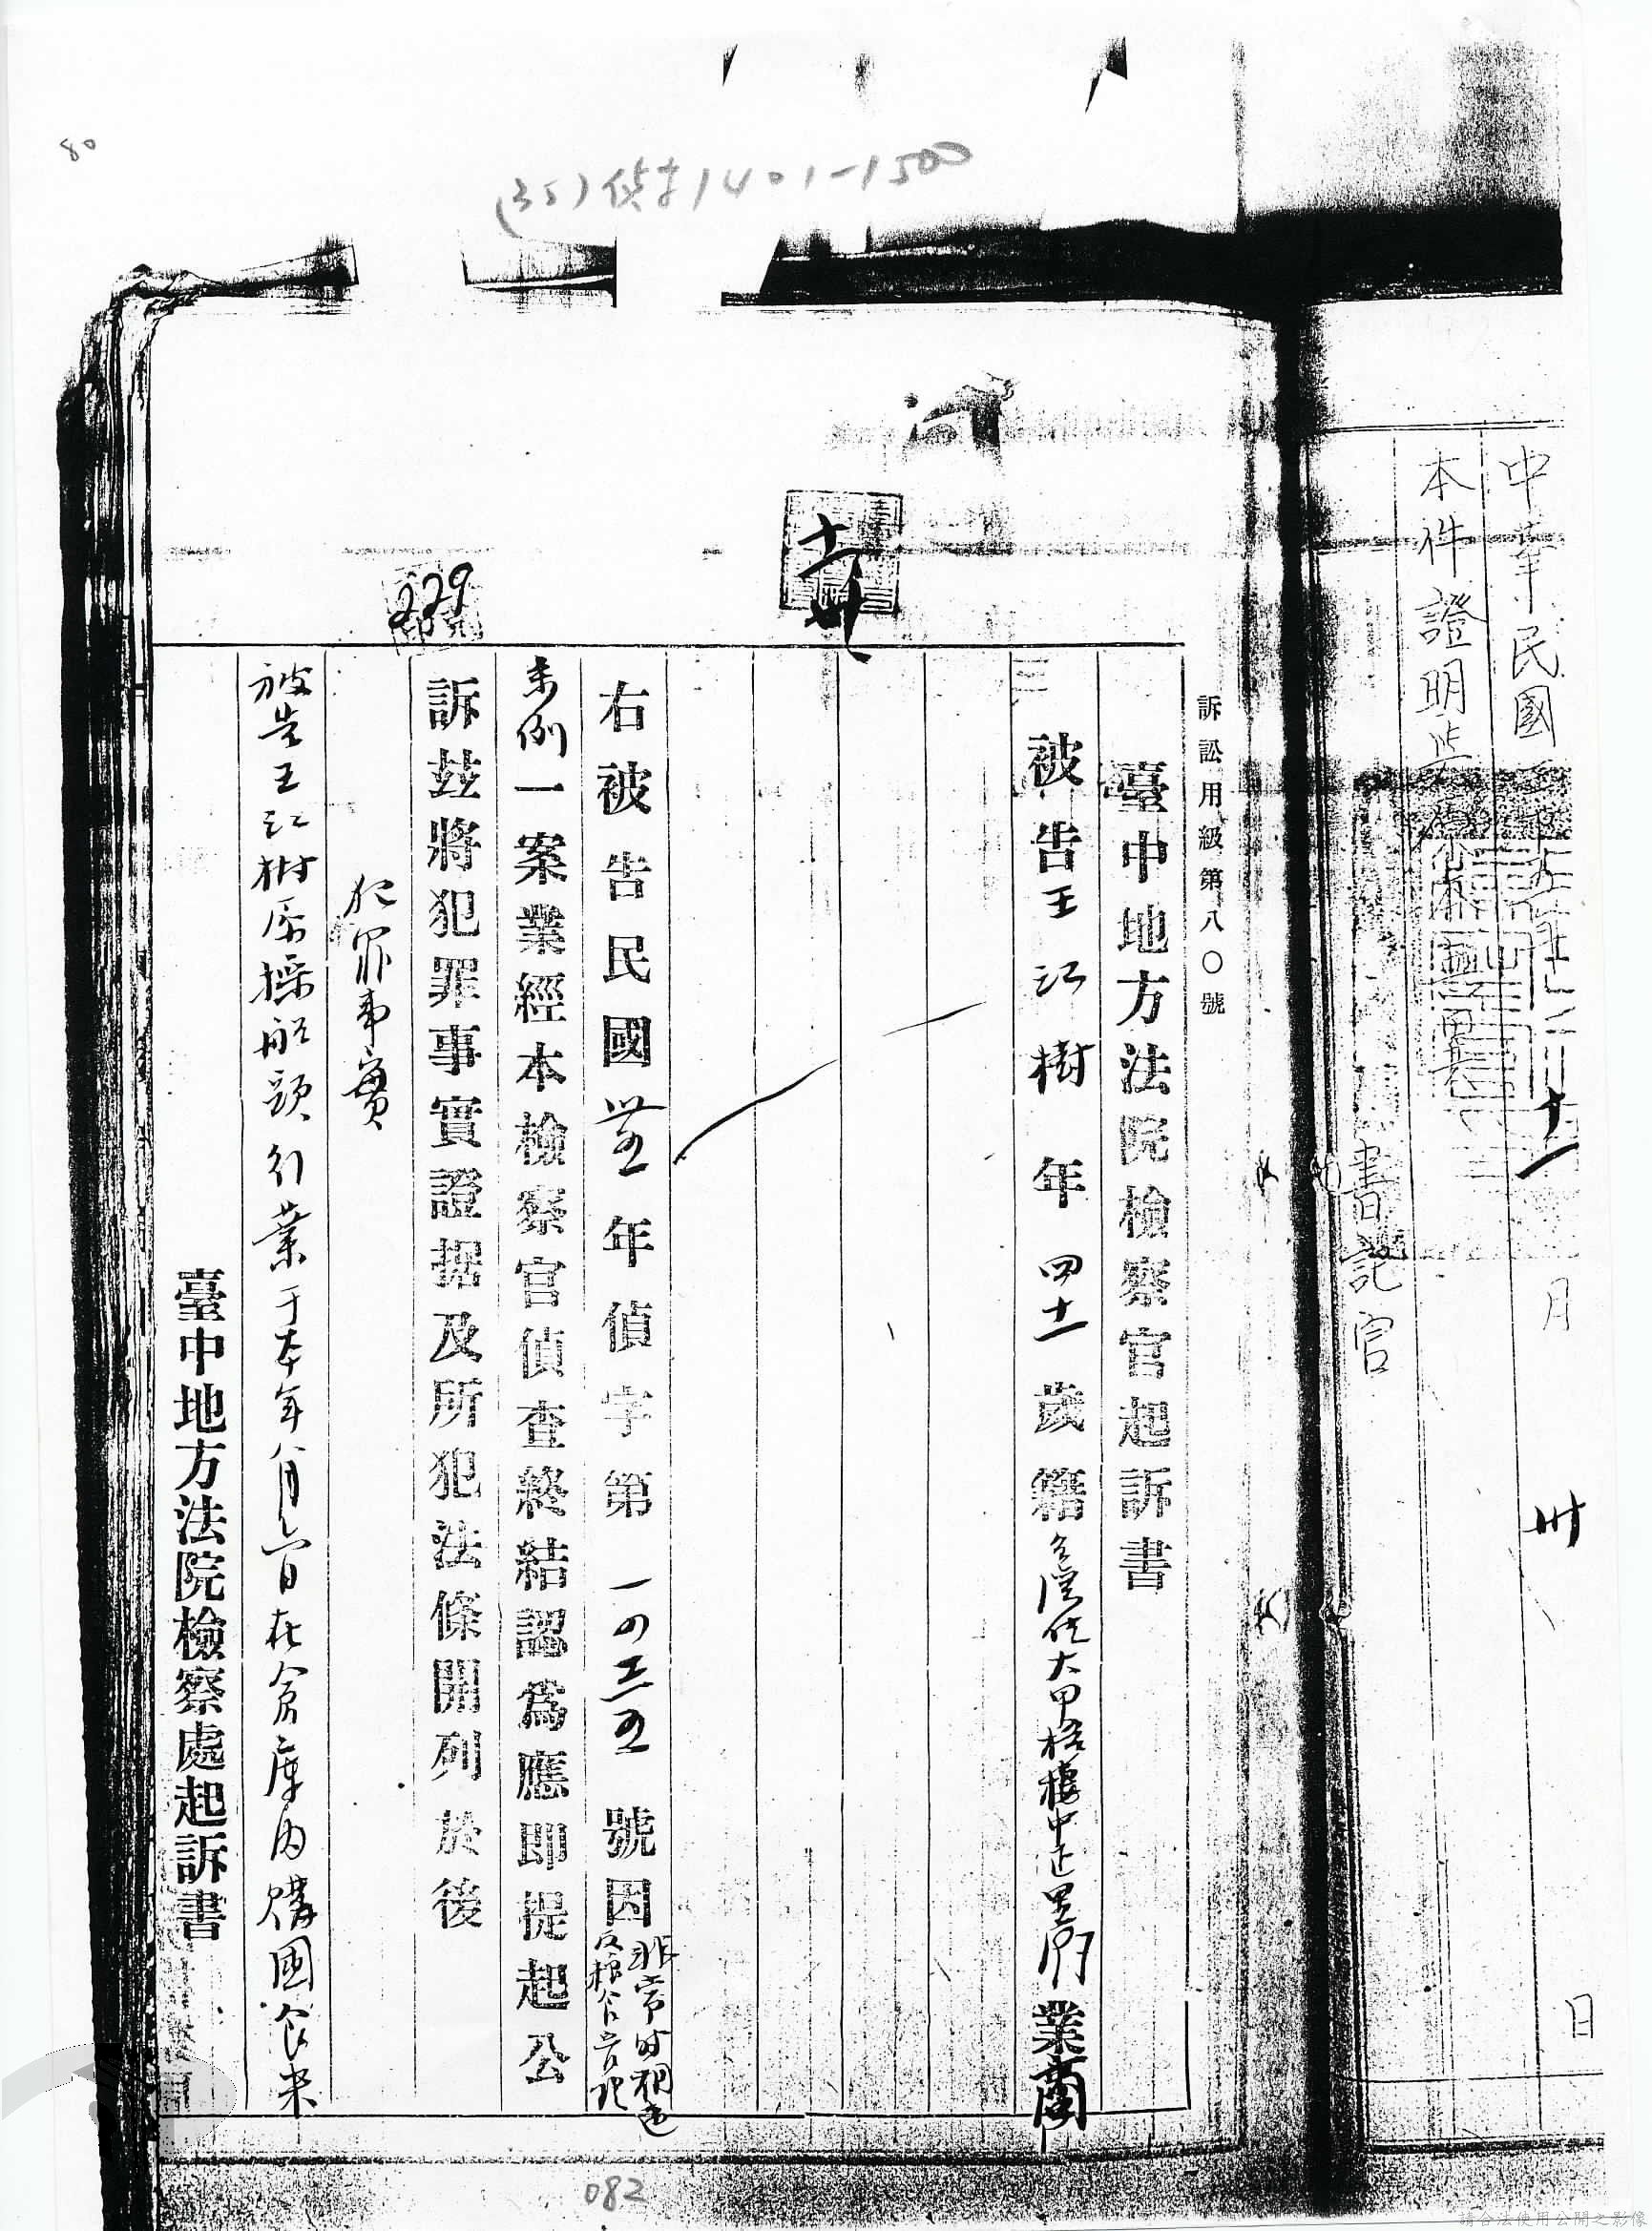 80
(35)偵字1401-1500
中華民國 年 十一 月 卅 日
本件證明
書記官
訴訟用紙第八〇號
臺中地方法院檢察官起訴書
被告王江樹 年 四十一 歲 籍 住大甲梧棲中正里 業商
右被告民國 卅五 年偵字第 一四三五 號因非常時期違反糧食管理
條例一案業經本檢察官偵查終結認為應即提起公
訴茲將犯罪事實證据及所犯法條開列於後
229
犯罪事實
被告王江樹原操船頭行業于本年八月 日在倉庫內購國食米
臺中地方法院檢察處起訴書
082
請合法使用公開之影像